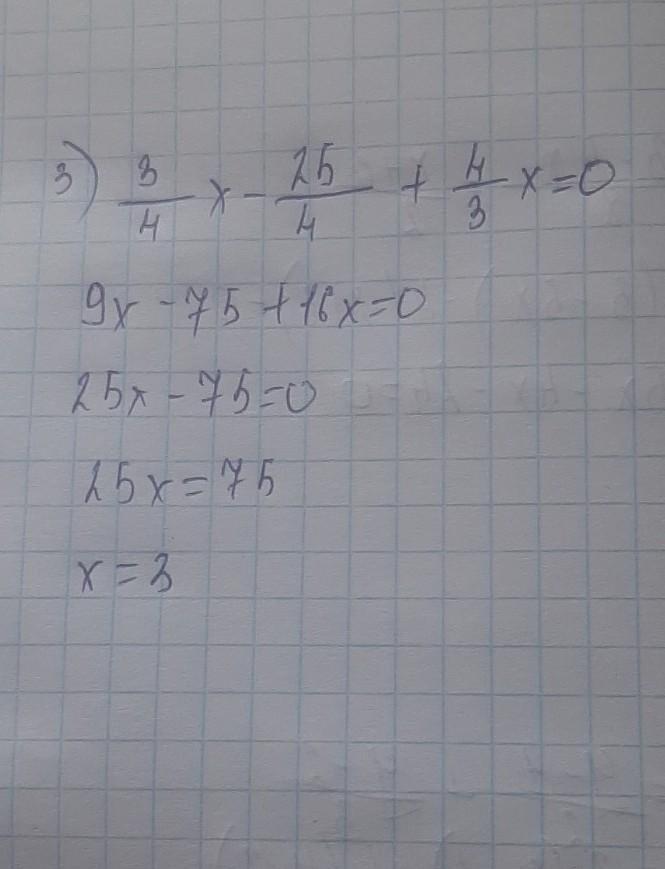 3) 3/4 x - 25/4 + 4/3 x = 0
9x - 75 + 16x = 0
25x - 75 = 0
25x = 75
x = 3